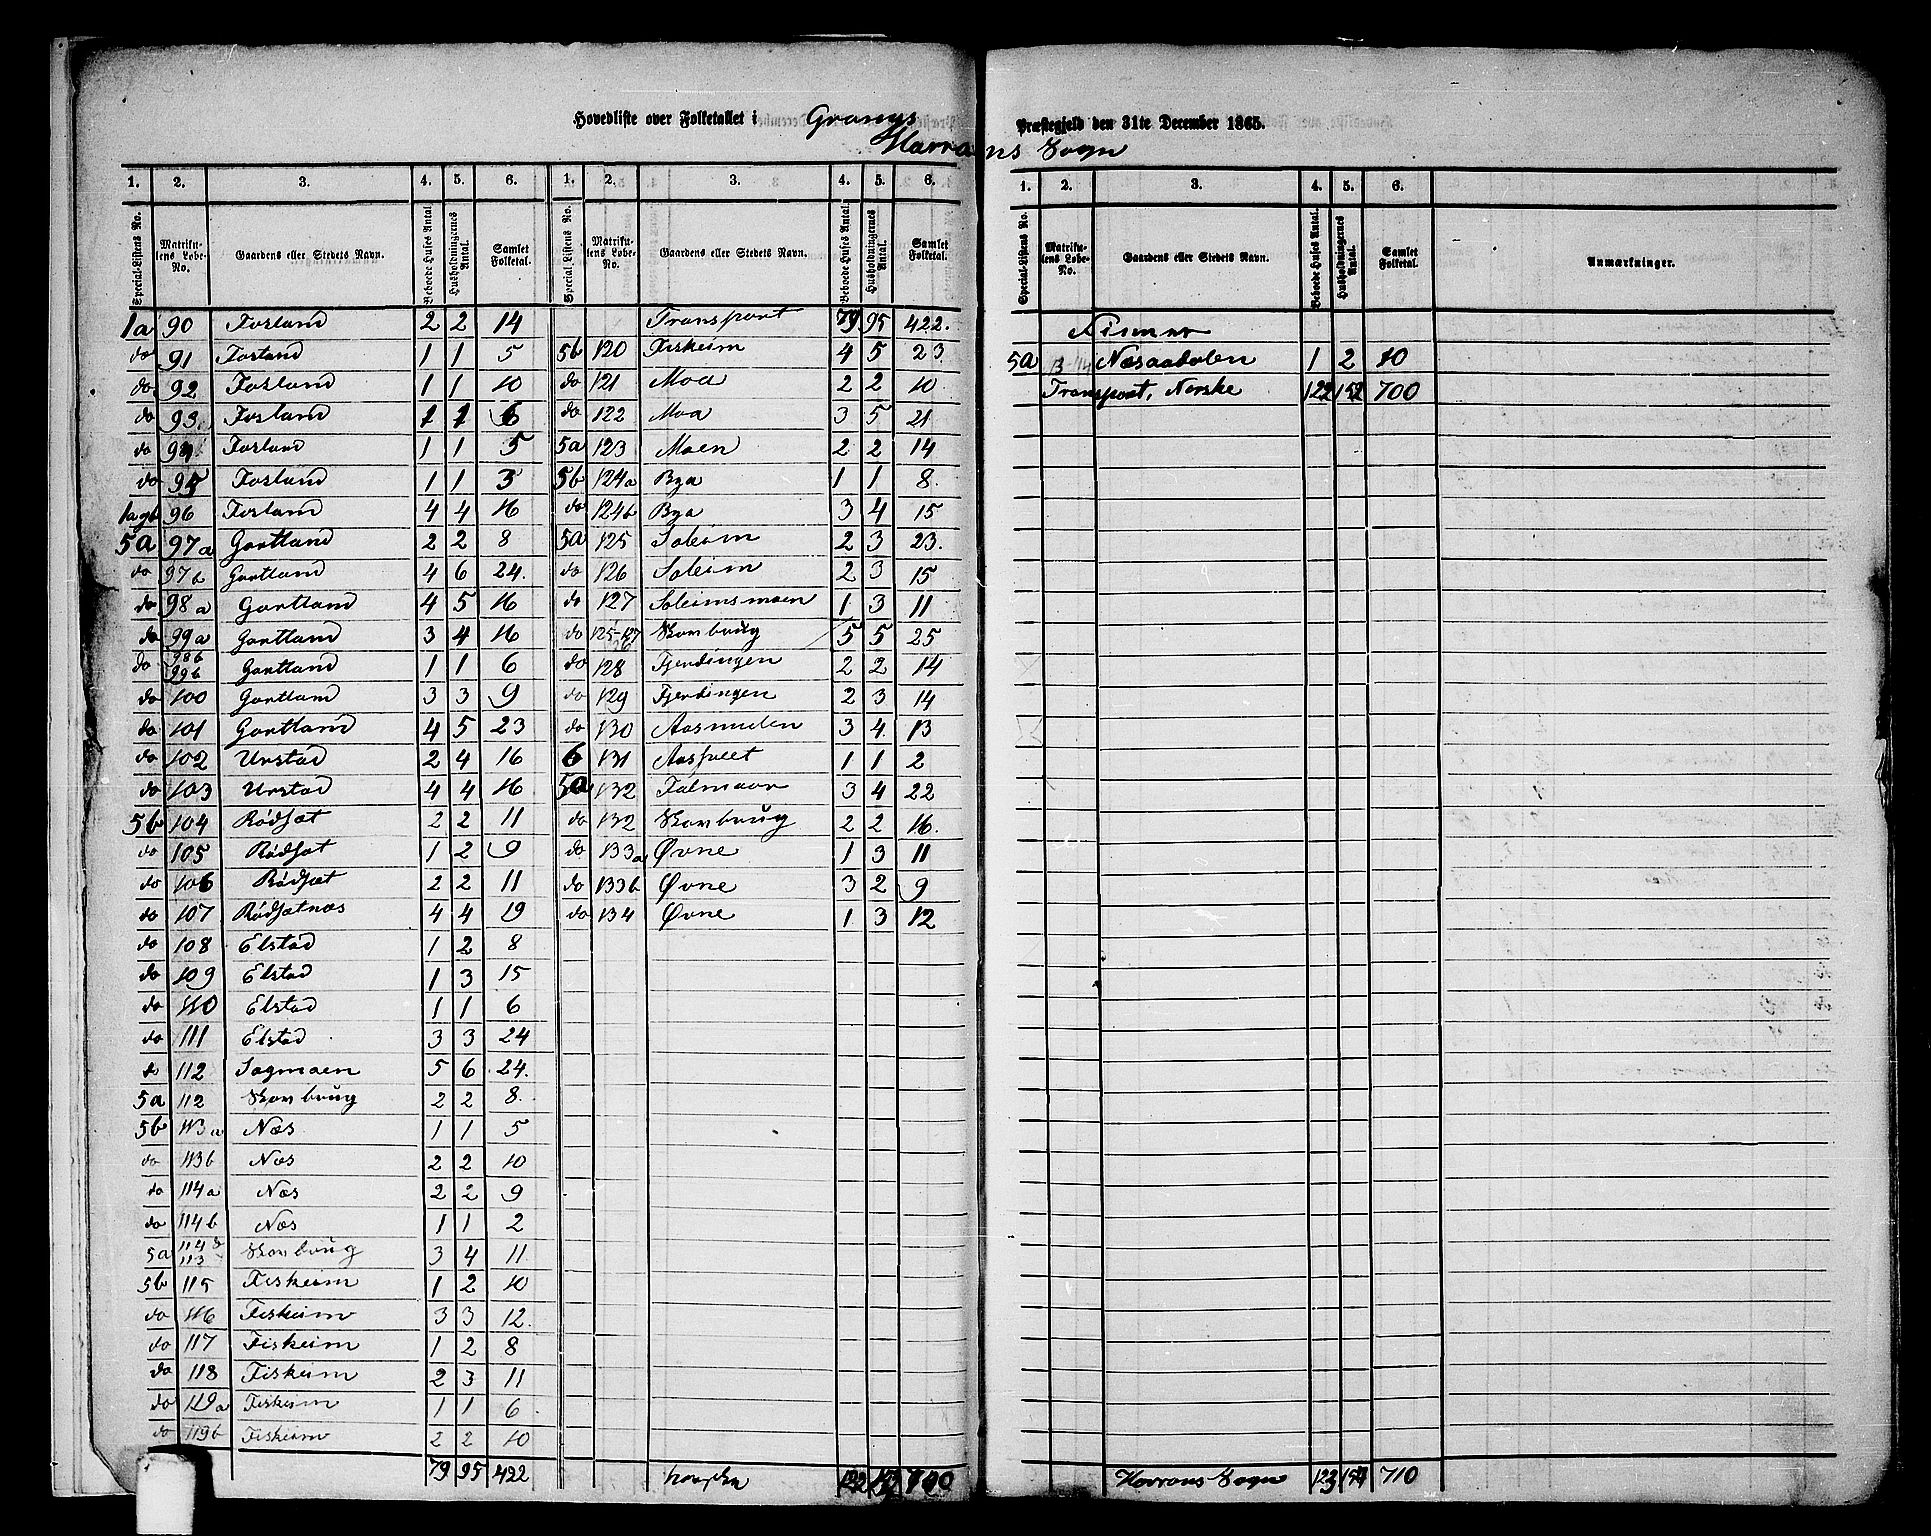 Hovedliste over Folketallet i Grongs Præstegjeld den 31te December 1865.
Harrans Sogn
1. 2. 3. 4. 5. 6. 1. 2. 3. 4. 5. 6.
Special-Listens No. Matrikulens Løbe-No. Gaardens eller Stedets Navn. Beboede Huses Antal. Husholdningernes Antal. Samlet Folketal. Special Listens No. Matrikulens Løbe-No. Gaardens eller Stedets Navn. Beboede Huses Antal. Husholdningernes Antal. Samlet Folketal.
1a 90 Fosland 2 2 14 Transport 79 95 422.
do 91 Fosland 1 1 5 5b 120 Fiskeim 4 5 23
do 92 Fosland 1 1 10 do 121 Moa 2 2 10
do 93 Fosland 1 1 6 do 122 Moa 3 5 21
do 94 Fosland 1 1 5 5a 123 Moen 2 2 14
do 95 Fosland 1 1 3 5b 124a Bya 1 1 8
1a9b 96 Fosland 4 4 16 do 124b Bya 3 4 15
5a 97a Gartland 2 2 8 5a 125 Soleim 2 3 23.
do 97b Gartland 4 6 24. do 126 Soleim 2 3 15
do 98a Gartland 4 5 16 do 127 Soleimsmoen 1 3 11
do 99a Gartland 3 4 16 do 125-127 26 Skovbrug 5 5 25
do 98b 99b Gartland 1 1 6 do 128 Fjerdingen 2 2 14
do 100 Gartland 3 3 9 do 129 Fjerdingen 2 3 14
do 101 Gartland 4 5 23 do 130 Aasmulen 3 4 13
do 102 Urstad 2 4 16 6 131 Aasfleet 1 1 2
do 103 Urstad 4 4 16 5a 132 Følmaar 3 4 22
5b 104 Rødsæt 2 2 11 do 132 Skovbrug 2 2 16
do 105 Rødsæt 1 2 9 do 133a Øvne 1 3 11
do 106 Rødsæt 2 2 11 do 133b Øvne 3 2 9
do 107 Rødsætnæs 4 4 19 do 134 Øvne 1 3 12
do 108 Elstad 1 2 8
do 109 Elstad 1 3 15
do 110 Elstad 1 1 6
do 111 Elstad 3 3 24
do 112 Sagmoen 5 6 24.
5a 112 Skovbrug 2 2 8
5b 113a Næs 1 1 5
do 113b Næs 2 2 10
do 114a Næs 2 2 9
do 114b Næs 1 1 2
5a 114 & 113 Skovbrug 3 4 11
5b 115 Fiskeim 1 2 10
do 116 Fiskeim 3 3 12.
do 117 Fiskeim 1 2 8
do 118 Fiskeim 2 3 11
do 119a Fiskeim 1 1 6
do 119b Fiskeim 2 2 10
79 95 422 122 152 700
1. 2. 3. 4. 5. 6.
Special-Listens No. Matrikulens Løbe-No. Gaardens eller Stedets Navn. Beboede Huses Antal. Husholdningernes Antal. Samlet Folketal. Anmærkninger.
5a Næsaadalen 1 2 10
Transport, Norske 122 152 700
Harrans Sogn 123 154 710